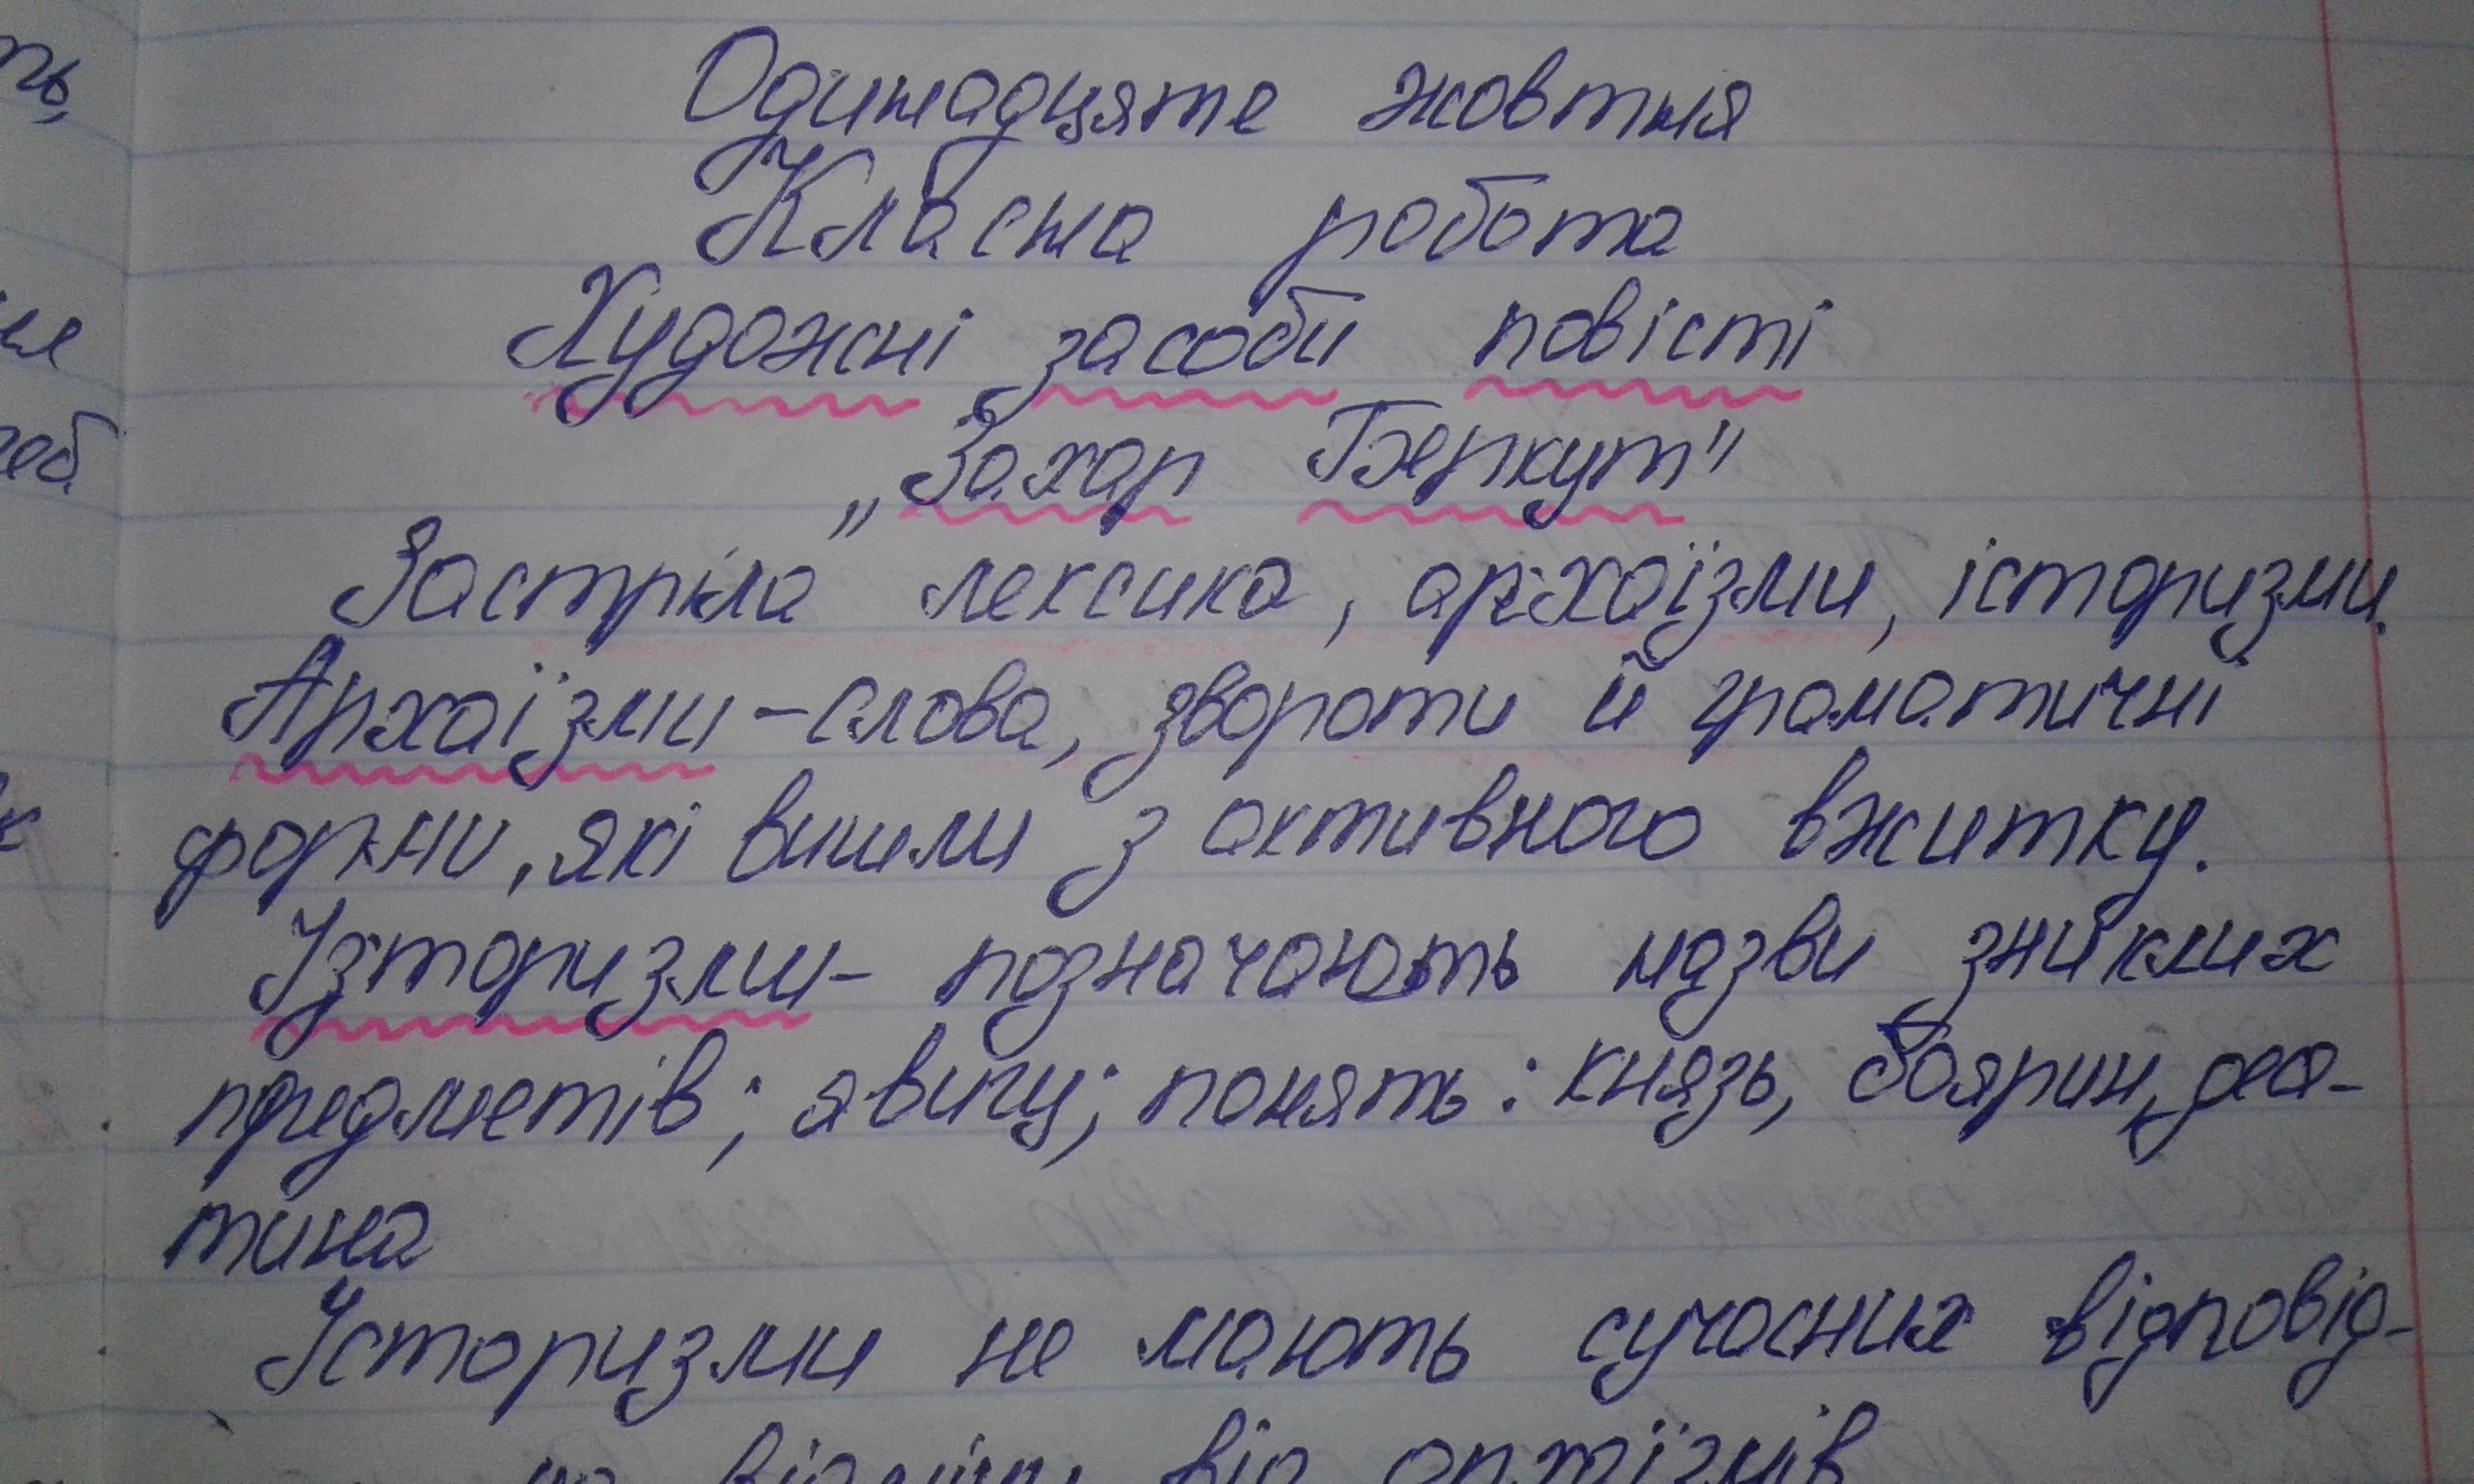 ть,
Одинадцяте жовтня
Класна робота
Художні засоби повісті
„Захар Беркут"
Застріла лексика, архаїзми, історизми.
Архаїзми – слова, звороти й граматичні
форми, які вишли з активного вжитку.
Ізторизми – позначають назви зниклих
предметів; явищ; понять: князь, боярин,
тина
Історизми не мають сучасних відповід-
на відміну від